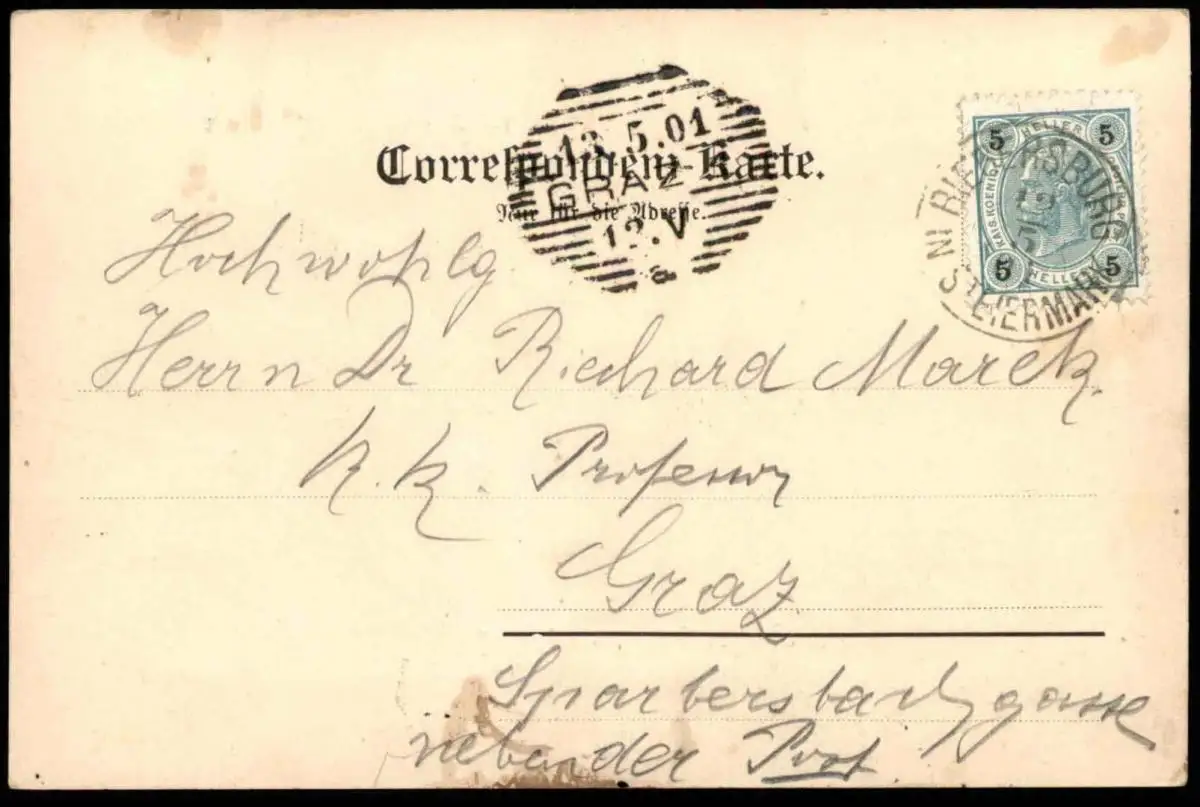 13.5.01
Correspondenz-Karte.
GRAZ
Nur für die Adresse.
12.V
a
5 HELLER 5
KAIS. KOENIGL.
5 HELLER 5
RIEGERSBURG
IN STEIERMARK
Hochwohlg
Herrn Dr Richard Marek
k. k. Professor
Graz
Sparbersbachgasse
neben der Post